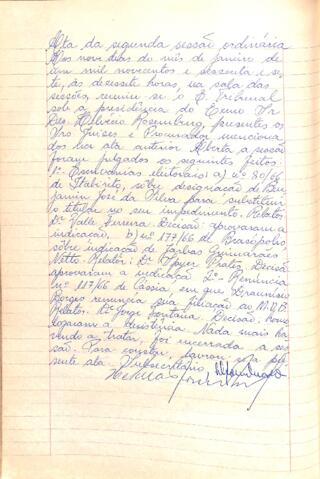 Ata da segunda sessão ordinária
Aos nove dias do mês de janeiro de
um mil novecentos e sessenta e se-
te, às dezessete horas, na sala das
sessões, reuniu-se o E. Tribunal
sob a presidência do Exmo Sr.
Des. Helvécio Rosemburg, presentes os
Srs Juízes e Procurador menciona
dos na ata anterior. Aberta a sessão
foram julgados os seguintes feitos:
1º- Escrivanias eleitorais: a) nº 80/66
de Itabirito, sôbre designação de Ben
jamim José da Silva para substituir
o titular no seu impedimento. Relator:
Dr. Valle Ferreira. Decisão: aprovaram a
indicação. b) nº 177/66 de Brasópolis
sôbre indicação de Jarbas Guimarães
Netto. Relator: Dr. Prates. Decisão
aprovaram a indicação. 2º- Renúncia
nº 117/66 de Cássia em que
Borges renuncia sua filiação ao M.D.B.
Relator: Dr. Jorge Fontana. Decisão: homo
logaram a desistência. Nada mais ha
vendo a tratar, foi encerrada a ses
são. Para constar, lavrou-se a pre
sente ata. Subsecretário